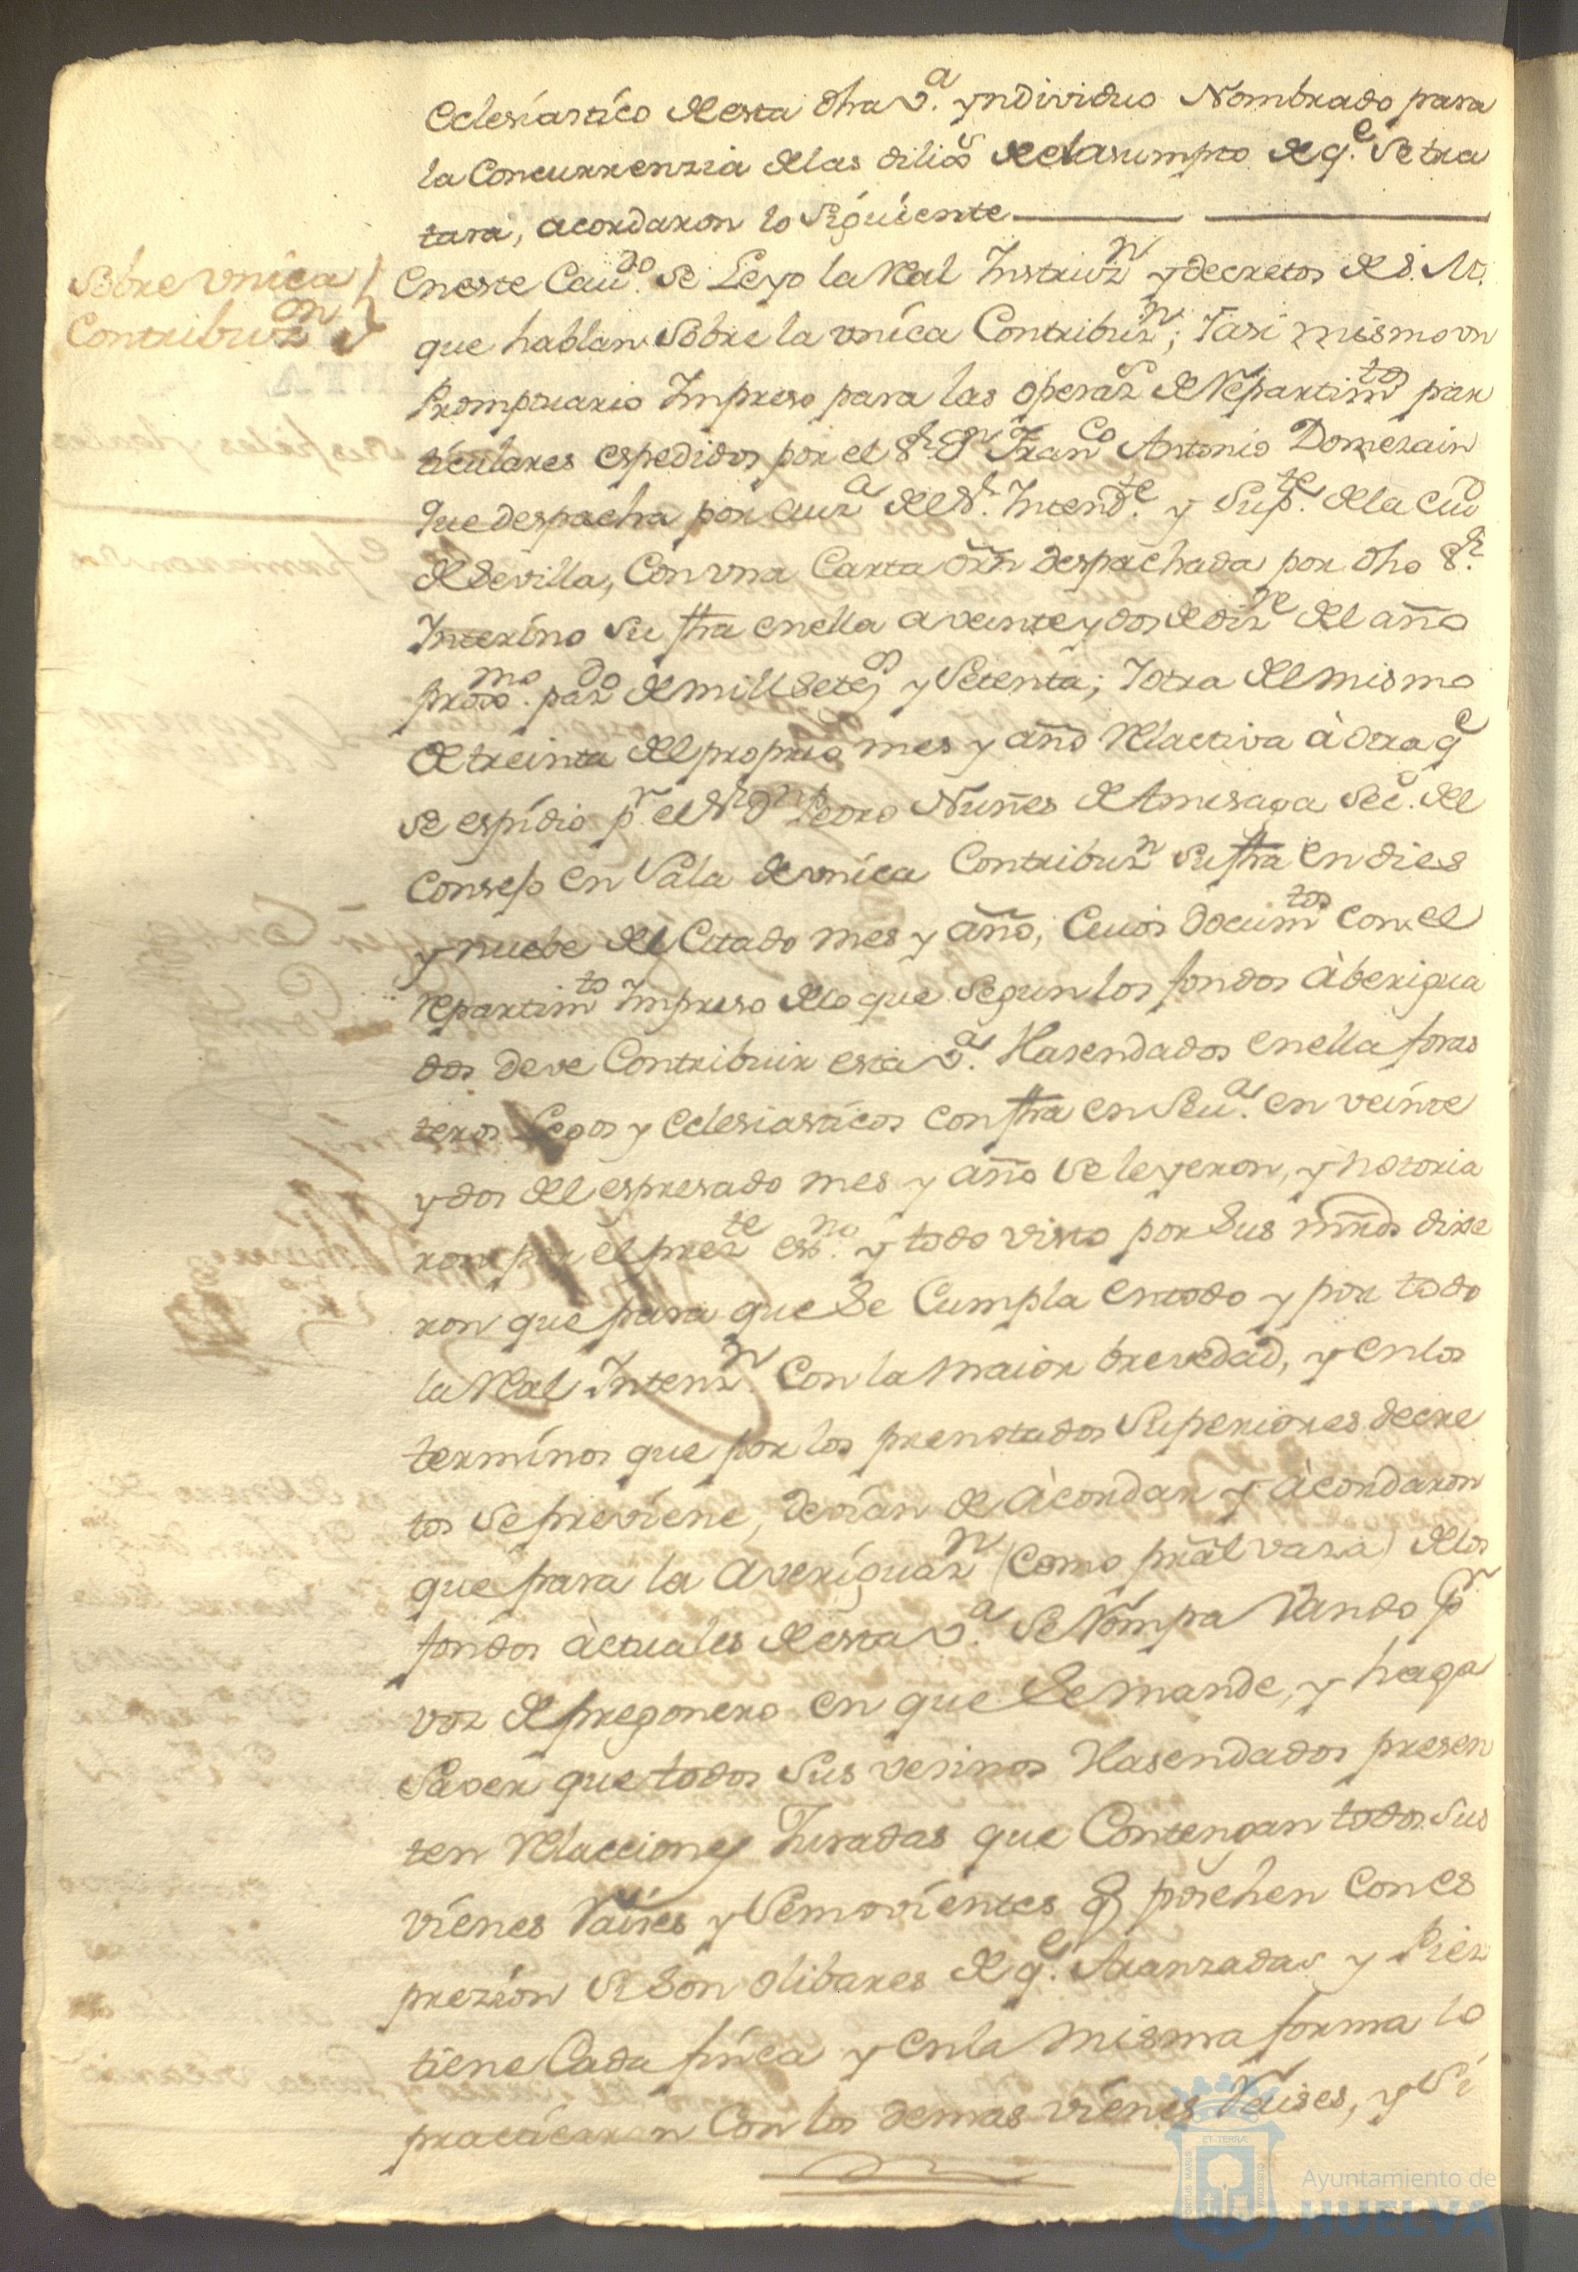 eclesiastico de esta dha v.ª yndividuo Nombrado para
la Concurrenzia de las dilixs del asumpto de q.e se tra
tara, acordaron lo siguiente
Sobre vnica
Contribuzon
En este Caudo. se Leyo la Real Instruzn y decretos de S. M.
que hablan sobre la vnica Contribuzn; Y asi mismo vn
Promptuario Impreso para las operazs de Repartimtos par
ticulares espedidos por el Sr Dn Franco Antonio Domezain
que despacha por auza del Sr. Intendte. y Supte. de la Ciud
de Sevilla, Con vna Carta orn despachada por dho Sr.
Interino su fha en ella a veinte y dos de dize del año
proxmo. pazdo de mill setezs y Setenta; Y otra del mismo
de treinta del proprio mes y año Relactiva à otra qe
se espidio pr. el Sr Dn Pedro Nuñes de Amesaga Sec. del
Consejo en Sala de vnica Contribuzn su fha en dies
y nuebe del Citado mes y año; Cuios documtos con el
repartimto Impreso de lo que segun los fondos àberigua
dos deve Contribuir esta v.ª Hasendados en ella foras
teros Legos y eclesiasticos con fha en Seua. en veinte
y dos del espresado mes y año se leyeron, y notoria
ron por el prezte esno. y todo visto por sus mrds dixe
ron que para que se Cumpla en todo y por todo
la Real Intenzn. Con la maior brevedad, y en los
terminos que por los prenotados Superiores decre
tos se previene, devian de àcordar y àcordaron
que para la averiguazn (como pral vaza) de los
fondos àctuales de esta v.ª se Rompa Vando pr
voz de pregonero en que se mande, y haga
saver que todos sus vesinos Hasendados presen
ten Relacciones Juradas que Contengan todos sus
vienes Raises y Semovientes q posehen con es
prezion si son olibares de q.e Aranzadas y Piez
tiene Cada finca y en la misma forma lo
practicaran Con los demas vienes Raises, y si
Ayuntamiento de
HUELVA